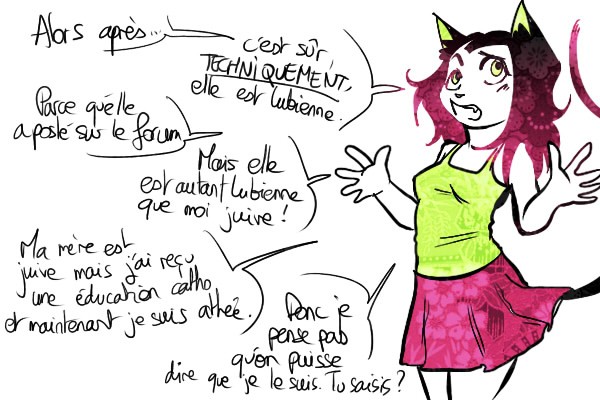 Alors après...
c'est sûr
TECHNIQUEMENT,
elle est lubienne.
Parce qu'elle
a posté sur le forum
Mais elle
est autant lubienne
que moi juive !
Ma mère est
juive mais j'ai reçu
une éducation catho
et maintenant je suis athée.
Donc je
pense pas
qu'on puisse
dire que je le suis. Tu saisis ?